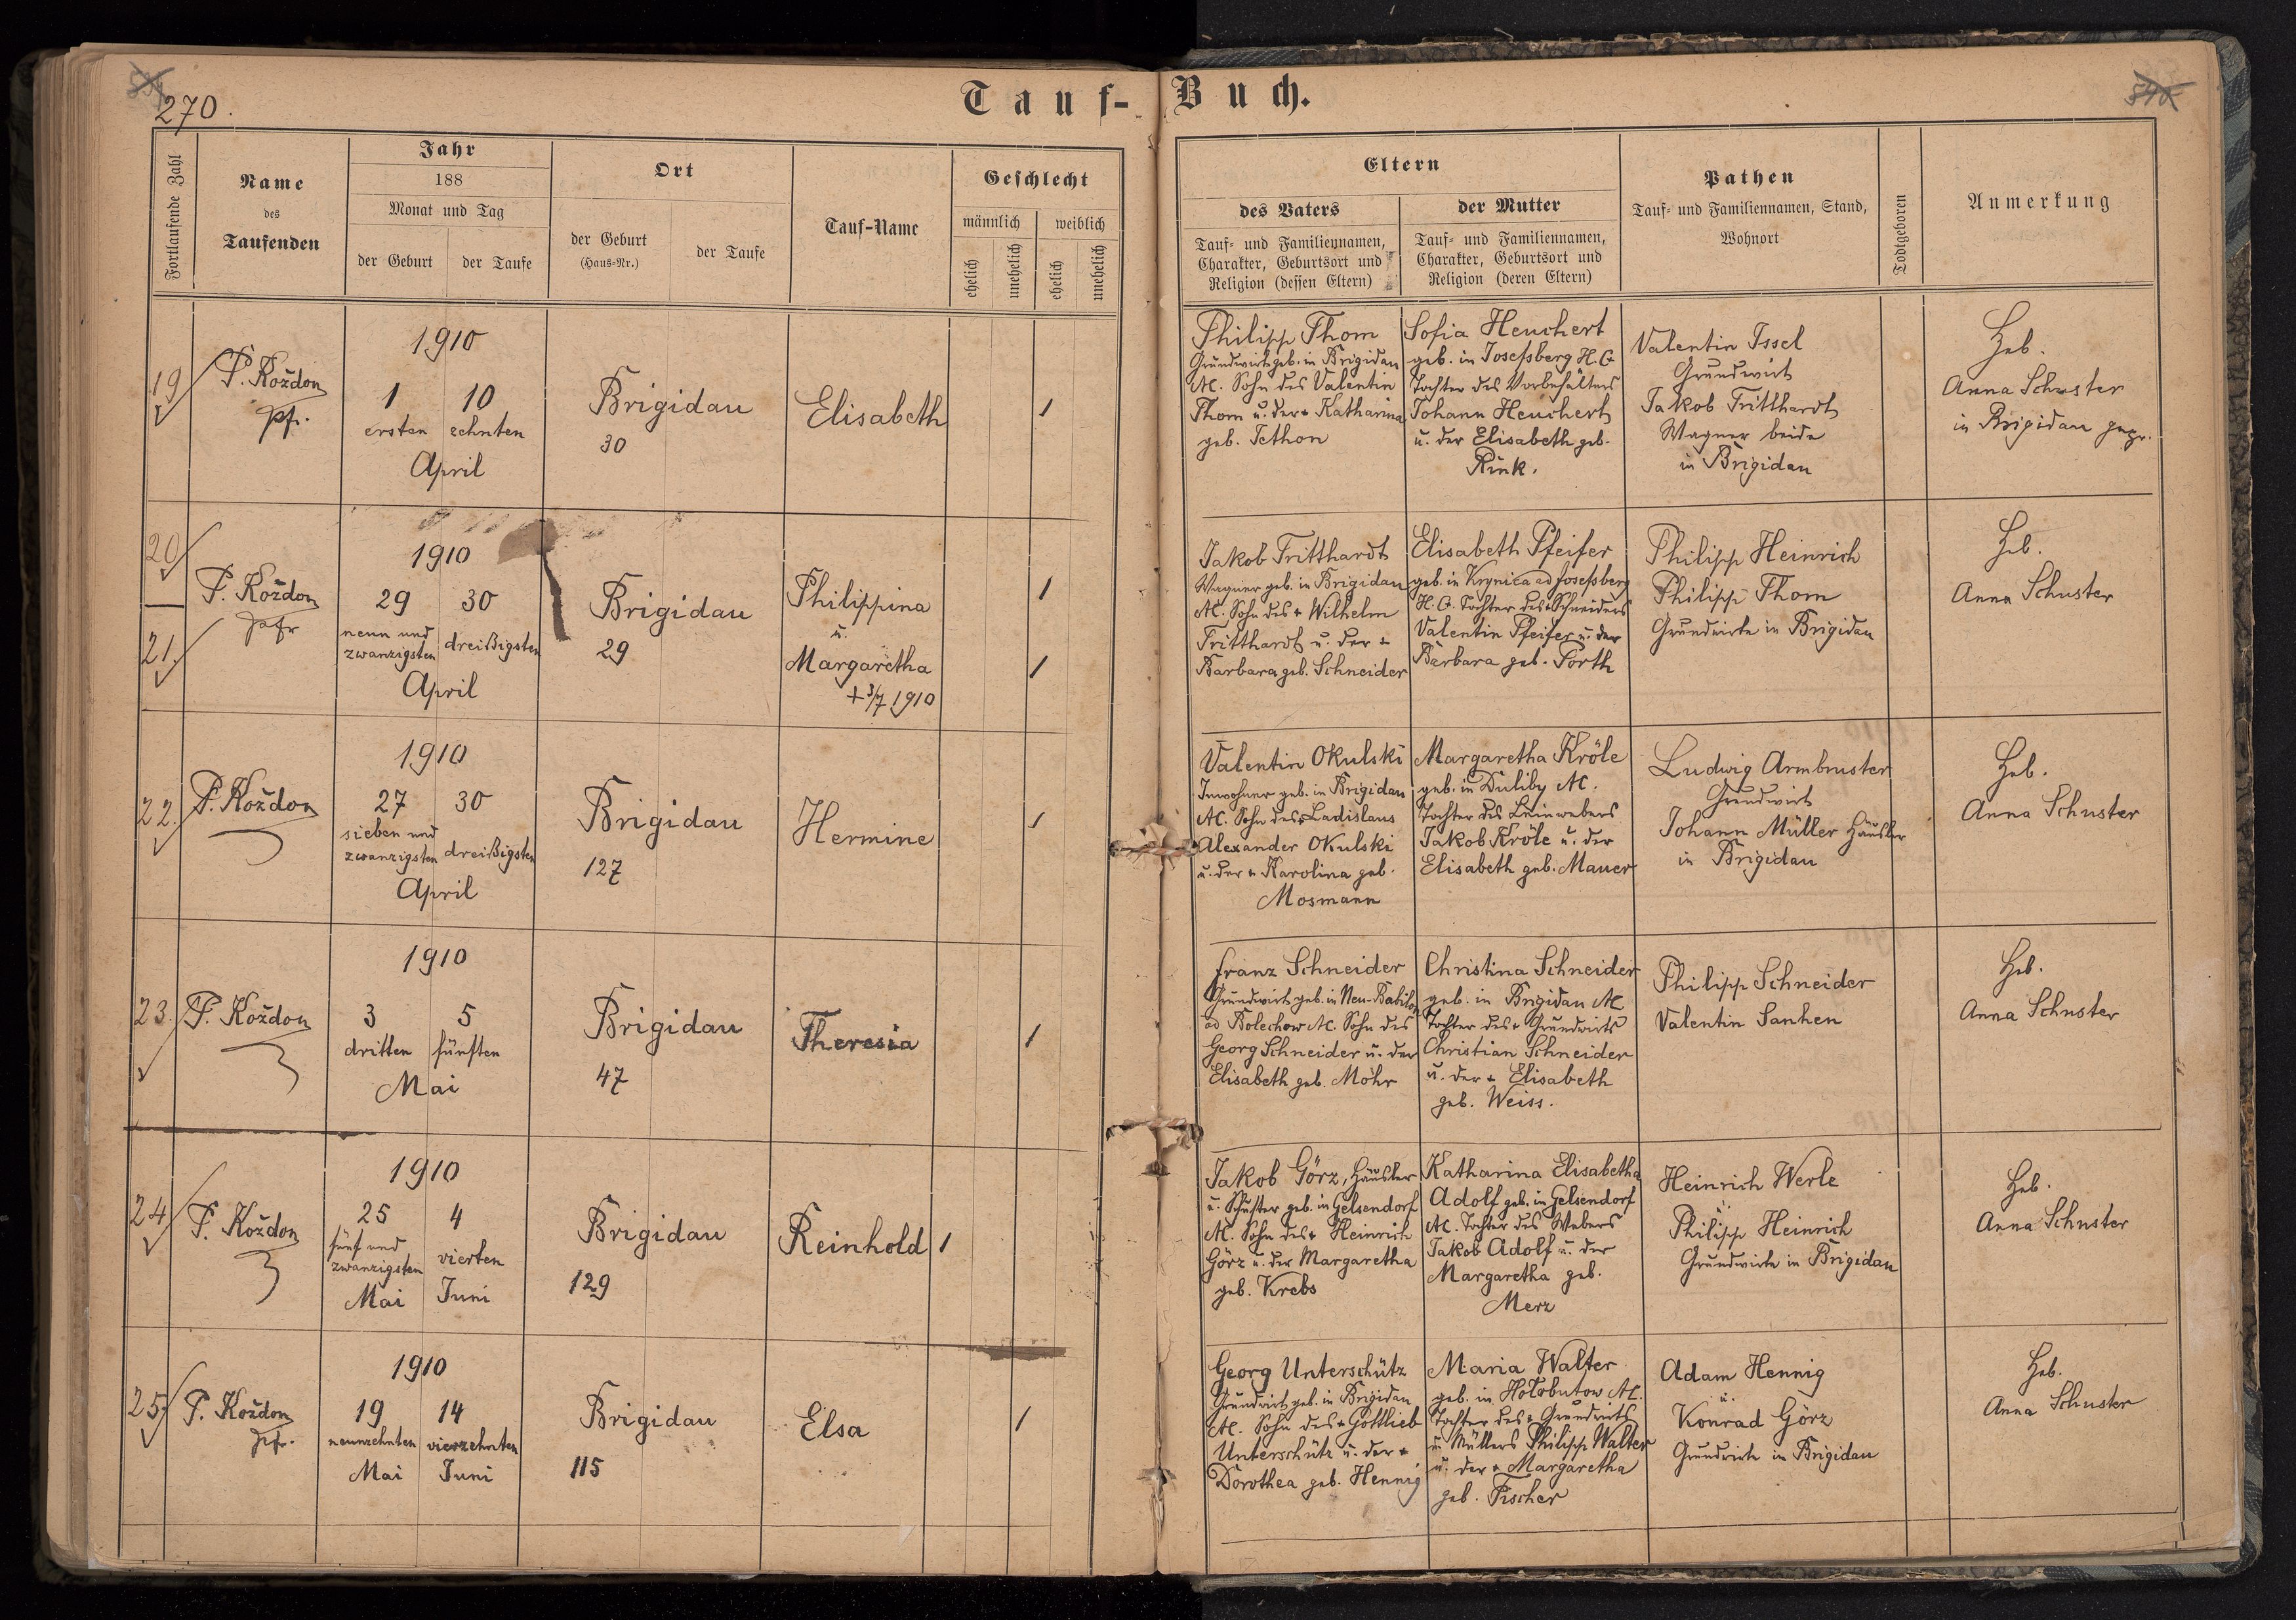 270.
Tauf-Buch.
Fortlaufende Zahl
Name
des
Taufenden
Jahr
188
Monat und Tag
der Geburt
der Taufe
Ort
der Geburt
(Haus-Nr.)
der Taufe
Tauf-Name
Geschlecht
männlich
weiblich
ehelich
unehelich
ehelich
unehelich
Eltern
des Vaters
Tauf- und Familiennamen,
Charakter, Geburtsort und
Religion (dessen Eltern)
der Mutter
Tauf- und Familiennamen,
Charakter, Geburtsort und
Religion (deren Eltern)
Pathen
Tauf- und Familiennamen, Stand,
Wohnort
Todtgeboren
Anmerkung
19
P. Koždon
Pfr.
1910
1 10
ersten zehnten
April
Brigidau
30
Elisabeth
1
Philipp Thom
Grundwirt geb. in Brigidau
A.C. Sohn des Valentin
Thom u. der + Katharina
geb. Tethon
Sofia Heuchert
geb. in Josefsberg H.C.
Tochter des Vorbehälters
Johann Heuchert
u. der Elisabeth geb.
Rink.
Valentin Issel
Grundwirt
Jakob Tritthardt
Wagner beide
in Brigidau
Heb.
Anna Schuster
in Brigidau gepr.
20
21.
P. Koždon
Pfr
1910
29 30
neun und
zwanzigsten dreißigsten
April
Brigidau
29
Philippina
u.
Margaretha
+ 3/7 1910
1
1
Jakob Tritthardt
Wagner geb. in Brigidau
A.C. Sohn des + Wilhelm
Tritthardt u. der +
Barbara geb. Schneider
Elisabeth Pfeifer
geb. in Krynica ad Josefsberg
H.C. Tochter des + Schneiders
Valentin Pfeifer u. der
Barbara geb. Porth
Philipp Heinrich
Philipp Thom
Grundwirte in Brigidau
Heb.
Anna Schuster
22.
P. Koždon
1910
27 30
sieben und
zwanzigsten dreißigsten
April
Brigidau
127
Hermine
1
Valentin Okulski
Inwohner geb. in Brigidau
A.C. Sohn des + Ladislaus
Alexander Okulski
u. der + Karolina geb.
Mosmann
Margaretha Kröle
geb. in Duliby A.C.
Tochter des Leinwebers
Jakob Kröle u. der
Elisabeth geb. Mauer
Ludwig Armbruster
Grundwirt
Johann Müller Häusler
in Brigidau
Heb.
Anna Schuster
23.
P. Koždon
1910
3 5
dritten fünften
Mai
Brigidau
47
Theresia
1
Franz Schneider
Grundwirt geb. in Neu-Babilon
ad Bolechow A.C. Sohn des
Georg Schneider u. der
Elisabeth geb. Mohr
Christina Schneider
geb. in Brigidau A.C.
Tochter des + Grundwirts
Christian Schneider
u. der + Elisabeth
geb. Weiss.
Philipp Schneider
Valentin Sanhen
Heb.
Anna Schuster
24
P. Koždon
1910
25 4
fünf und
zwanzigsten vierten
Mai Juni
Brigidau
129
Reinhold
1
Jakob Görz, Häusler
u. Schuster geb. in Gelsendorf
A.C. Sohn des + Heinrich
Görz u. der Margaretha
geb. Krebs
Katharina Elisabetha
Adolf geb. in Gelsendorf
A.C. Tochter des Webers
Jakob Adolf u. der
Margaretha geb.
Merz
Heinrich Werle
Philipp Heinrich
Grundwirte in Brigidau
Heb.
Anna Schuster
25.
P. Koždon
Pfr.
1910
19 14
neunzehnten vierzehnten
Mai Juni
Brigidau
115
Elsa
1
Georg Unterschütz
Grundwirt geb. in Brigidau
A.C. Sohn des + Gottlieb
Unterschütz u. der +
Dorothea geb. Hennig
Maria Walter
geb. in Hołobutow A.C.
Tochter des + Grundwirts
u. Müllers Philipp Walter
u. der + Margaretha
geb. Fischer
Adam Hennig
u.
Konrad Görz
Grundwirte in Brigidau
Heb.
Anna Schuster